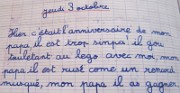 jeudi 3 octobre
Hier c'était l'anniversaire de mon
papa il est trop simpa il jou
seuletant au lego avec moi mon
papa il est rusé comme un renard
musqué, mon papa il as gagner